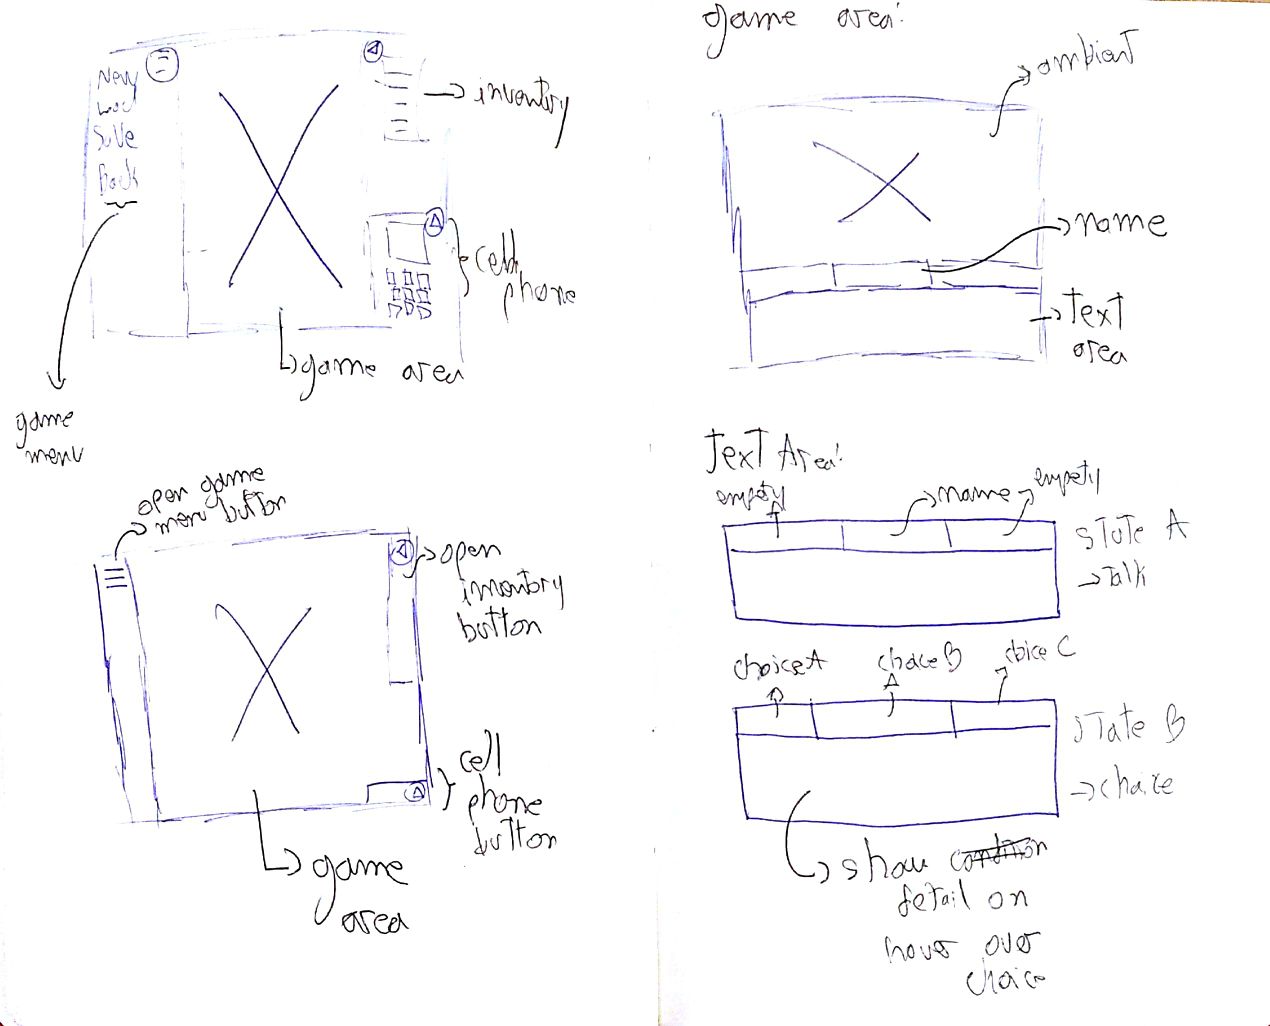 New
Load
Save
Back
inventory
cell
phone
game area
game
menu
open game
menu button
open
inventory
button
cell
phone
button
game
area
game area:
ambient
name
text
area
Text Area:
empety
name
empety
state A
Talk
choice A
choice B
choice C
state B
choice
show condition
detail on
hover over
choice